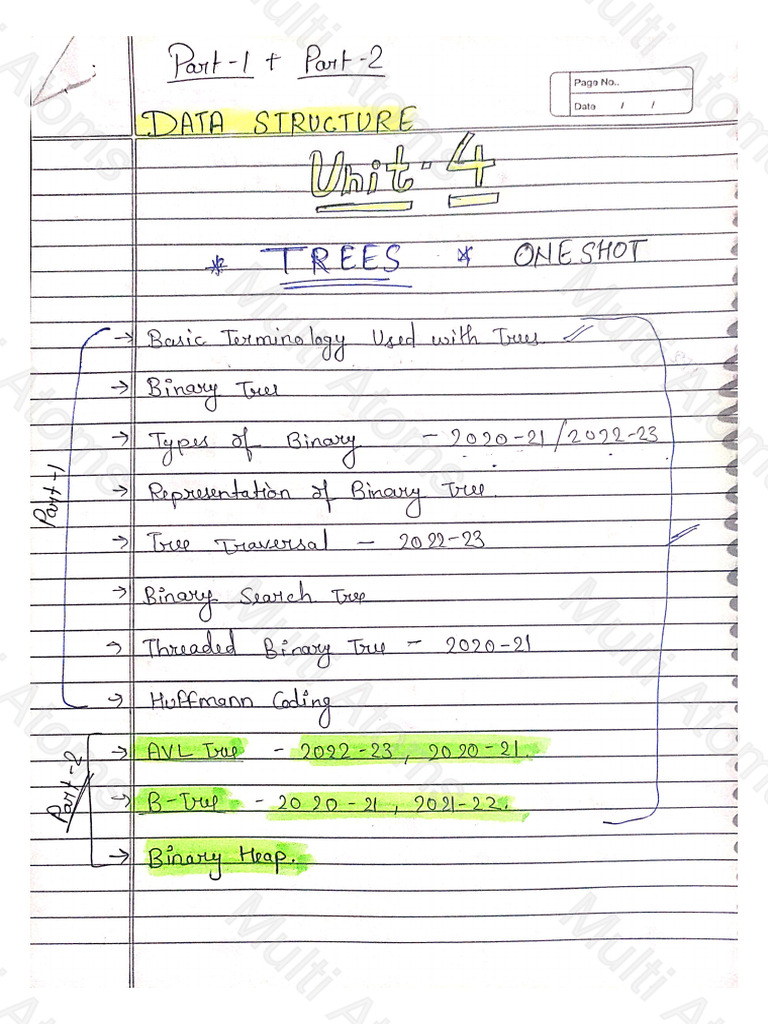 Part-1 + Part-2
Page No..
Date / /
DATA STRUCTURE
Unit-4
* TREES * ONE SHOT
→ Basic Terminology Used with Trees
→ Binary Tree
→ Types of Binary - 2020-21/2022-23
→ Representation of Binary Tree.
→ Tree Traversal - 2022-23
→ Binary Search Tree
→ Threaded Binary Tree - 2020-21
→ Huffmann Coding
Part-1
→ AVL Tree - 2022-23, 2020-21.
→ B-Tree - 2020-21, 2021-22.
→ Binary Heap.
Part-2
Multi Atoms